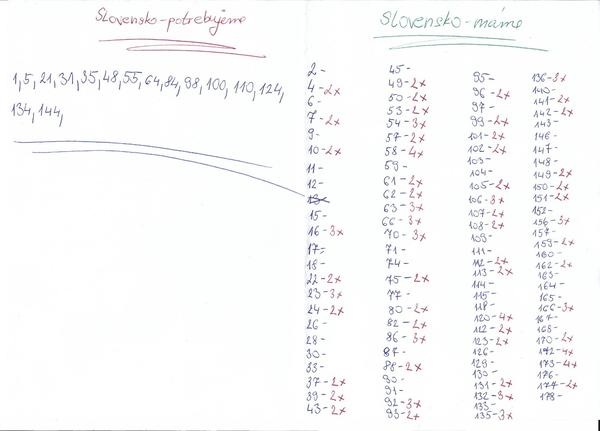 Slovensko-potrebujeme
1,5,21,31,35,48,55,64,84,98,100,110,124,
134,144,
Slovensko-máme
2-
4-2x
6-
7-2x
9-
10-2x
11-
12-
13x
15-
16-3x
17-
18-
22-2x
23-3x
24-2x
26-
28-
30-
33-
37-2x
39-2x
43-2x
45-
49-2x
50-2x
53-2x
54-3x
57-2x
58-4x
59-
61-2x
62-2x
63-3x
66-3x
70-3x
71-
74-
75-2x
77-
80-2x
82-2x
86-3x
87-
88-2x
90-
91-
92-3x
93-2x
95-
96-2x
97-
99-2x
101-2x
102-2x
103-
104-
105-2x
106-3x
107-2x
108-2x
109-
111-
112-2x
113-2x
114-
115-
118-
120-4x
122-2x
123-2x
126-
129-
130-
131-2x
132-3x
133-
135-3x
136-3x
140-
141-2x
142-2x
143-
146-
147-
148-
149-2x
150-2x
151-2x
152-
156-3x
157-
159-2x
160-
162-2x
163-
164-
165-
166-3x
167-
168-
170-2x
172-4x
173-4x
176-
177-2x
178-